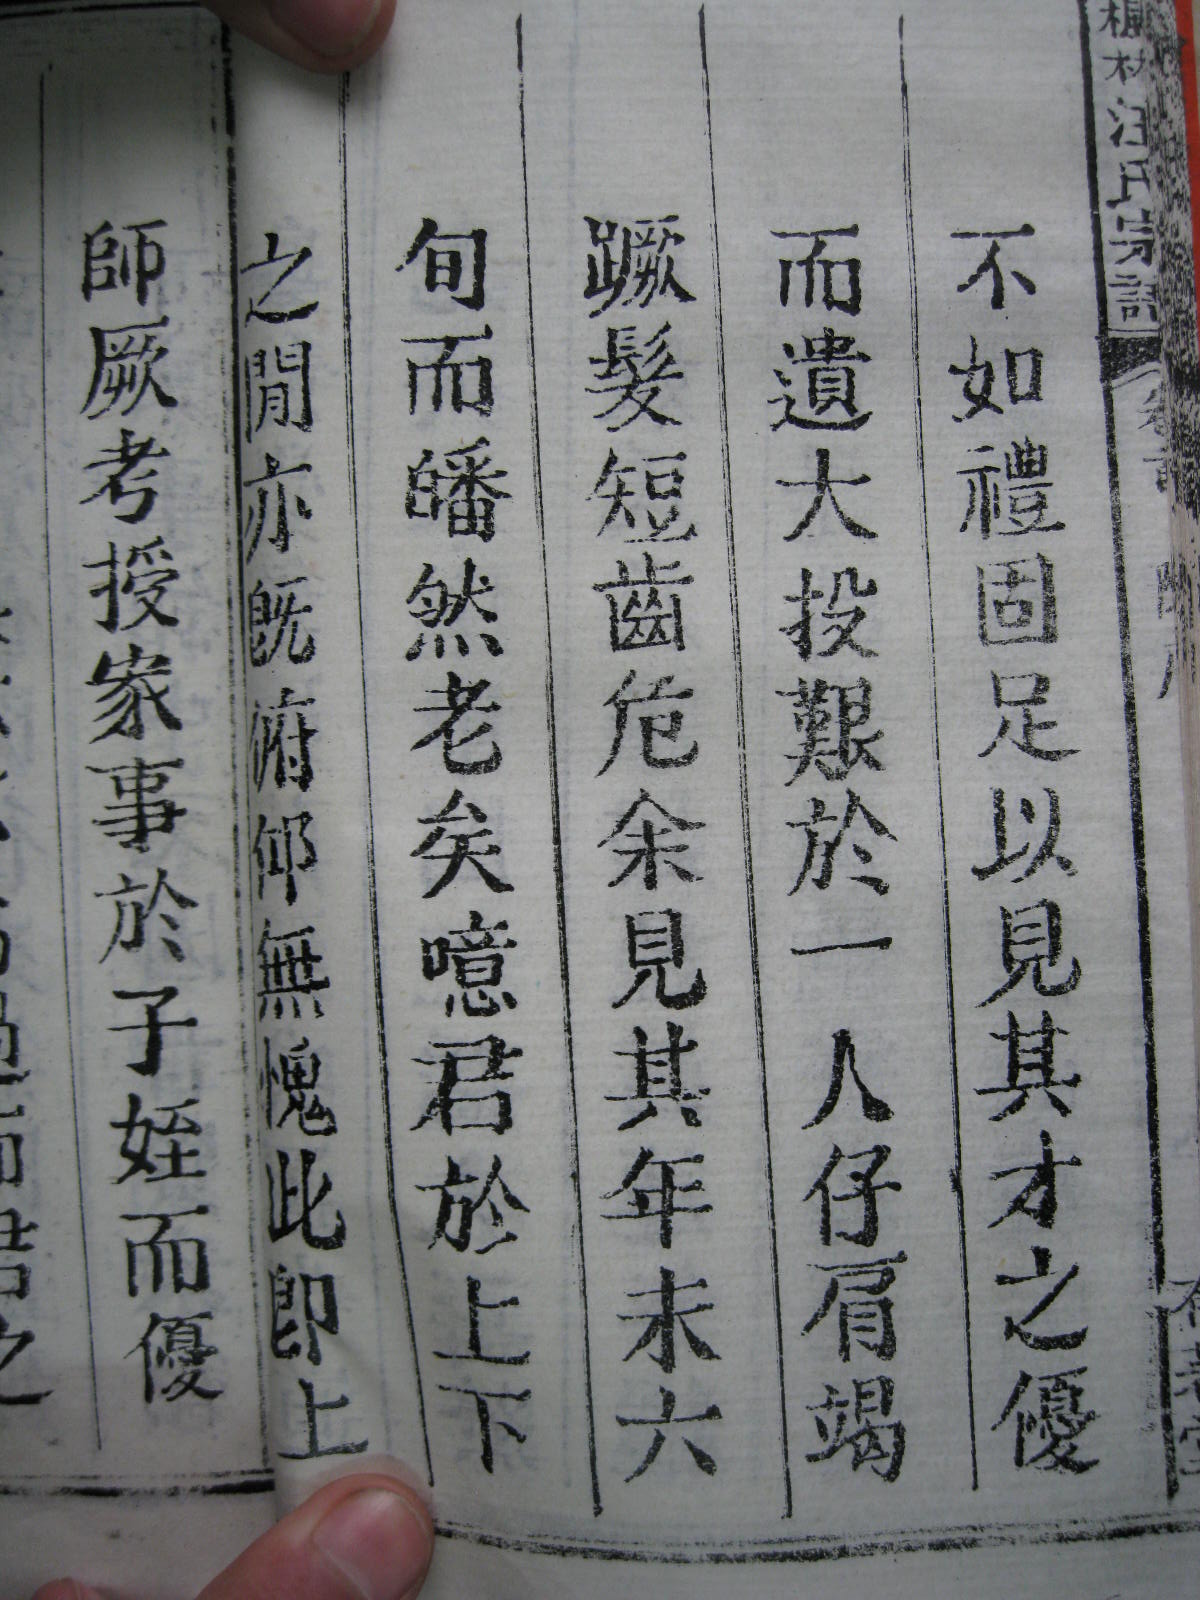 汪氏宗譜
不如禮固足以見其才之優
而遺大投艱於一人仔肩竭
蹶髮短齒危余見其年未六
旬而皤然老矣噫君於上下
之閒亦既俯仰無愧此即上
師厥考授家事於子姪而優